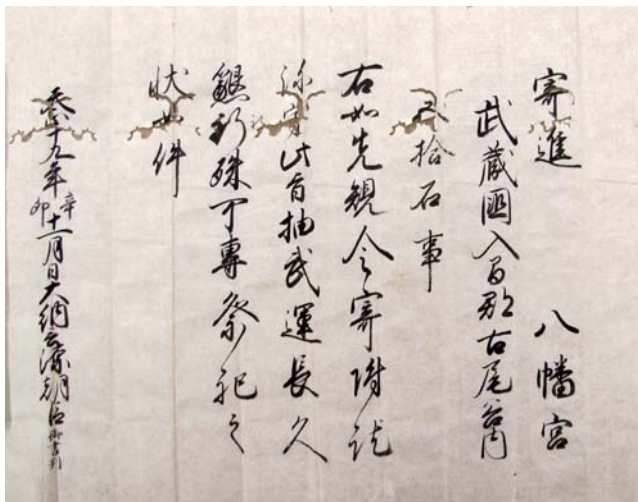 寄進 八幡宮
武蔵國入間郡古尾谷内
五拾石事
右如先規令寄附訖
弥守此旨抽武運長久
懇祈殊可專祭祀之
状如件
天正十九年辛卯十一月日大納言源朝臣御書判